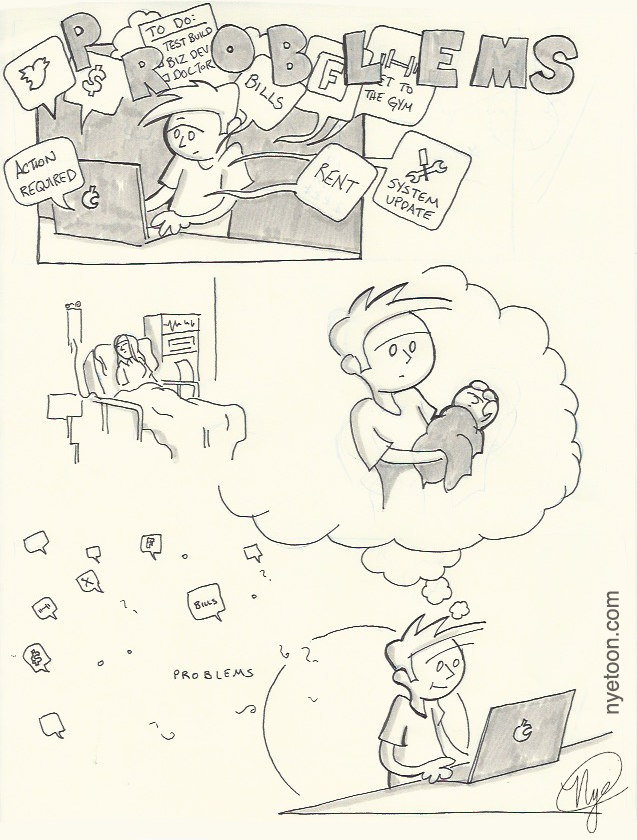 PROBLEMS
TO DO:
TEST BUILD
BIZ DEV
DOCTOR
$
BILLS
F
GET TO
THE GYM
ACTION
REQUIRED
RENT
SYSTEM
UPDATE
BILLS
$
PROBLEMS
nyetoon.com
Nye